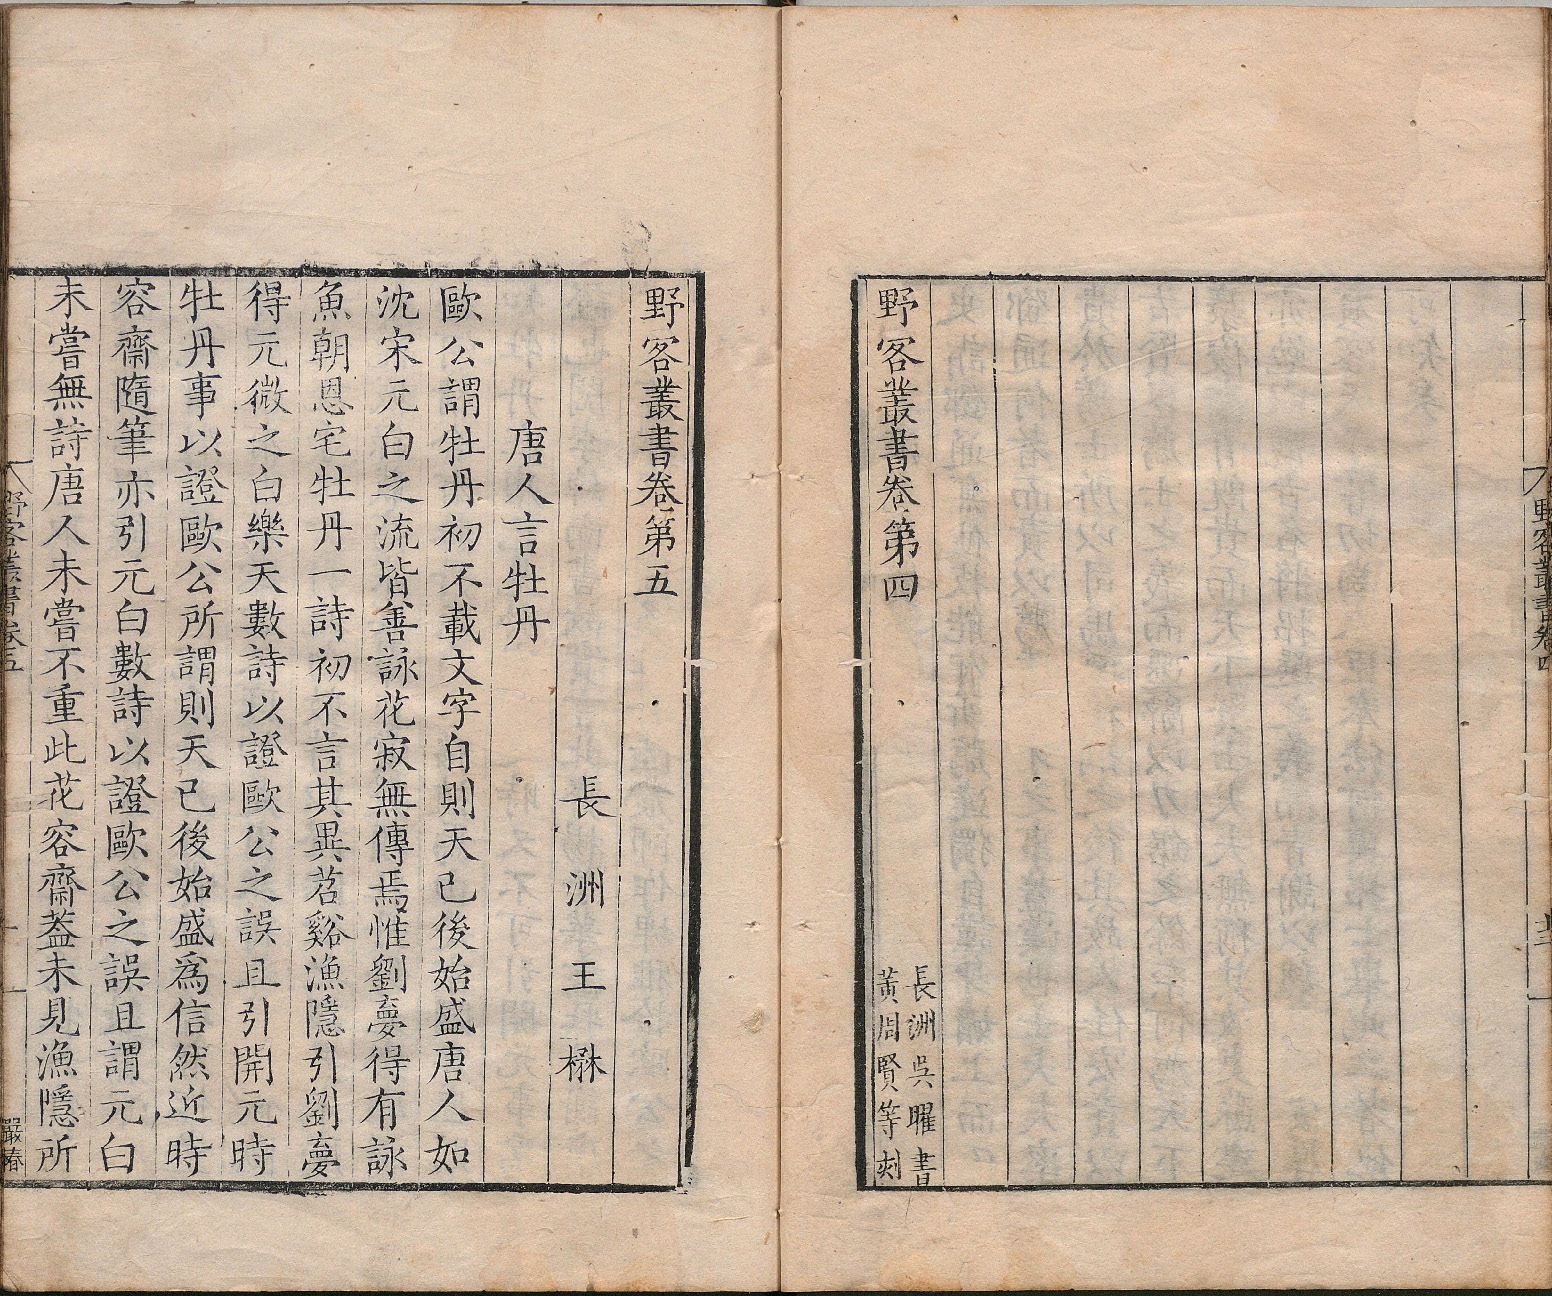 野客叢書卷第四
長洲吳曜書
黃周賢等刻
野客叢書卷四
野客叢書卷第五
長洲王楙
唐人言牡丹
歐公謂牡丹初不載文字自則天已後始盛唐人如
沈宋元白之流皆善詠花寂無傳焉惟劉夢得有詠
魚朝恩宅牡丹一詩初不言其異苕谿漁隱引劉夢
得元微之白樂天數詩以證歐公之誤且引開元時
牡丹事以證歐公所謂則天已後始盛爲信然近時
容齋隨筆亦引元白數詩以證歐公之誤且謂元白
未嘗無詩唐人未嘗不重此花容齋蓋未見漁隱所
野客叢書卷五
一
嚴椿